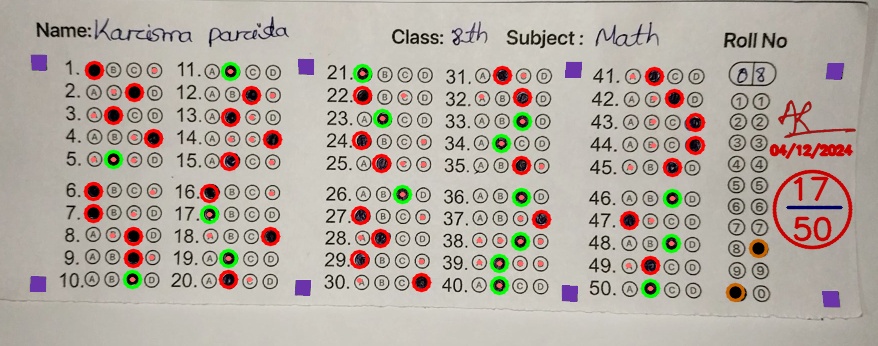 Name: Karcisma parida Class: 8th Subject: Math Roll No
08
1. B C D
2. A B D
3. A C D
4. A B C
5. A C D
6. B C D
7. B C D
8. A B D
9. A B D
10. A B D
11. A C D
12. A B D
13. A C D
14. A B C
15. A C D
16. B C D
17. B C D
18. A B C
19. A C D
20. A C D
21. B C D
22. B C D
23. A C D
24. B C D
25. A C D
26. A B D
27. B C D
28. A C D
29. B C D
30. A B C
31. A C D
32. A B D
33. A B D
34. A C D
35. A B D
36. A B D
37. A B C
38. A B D
39. A C D
40. A C D
41. A C D
42. A B D
43. A B C
44. A B C
45. A B D
46. A B D
47. B C D
48. A B D
49. A C D
50. A C D
1 1
2 2
3 3
4 4
5 5
6 6
7 7
8
9 9
0
04/12/2024
17
50